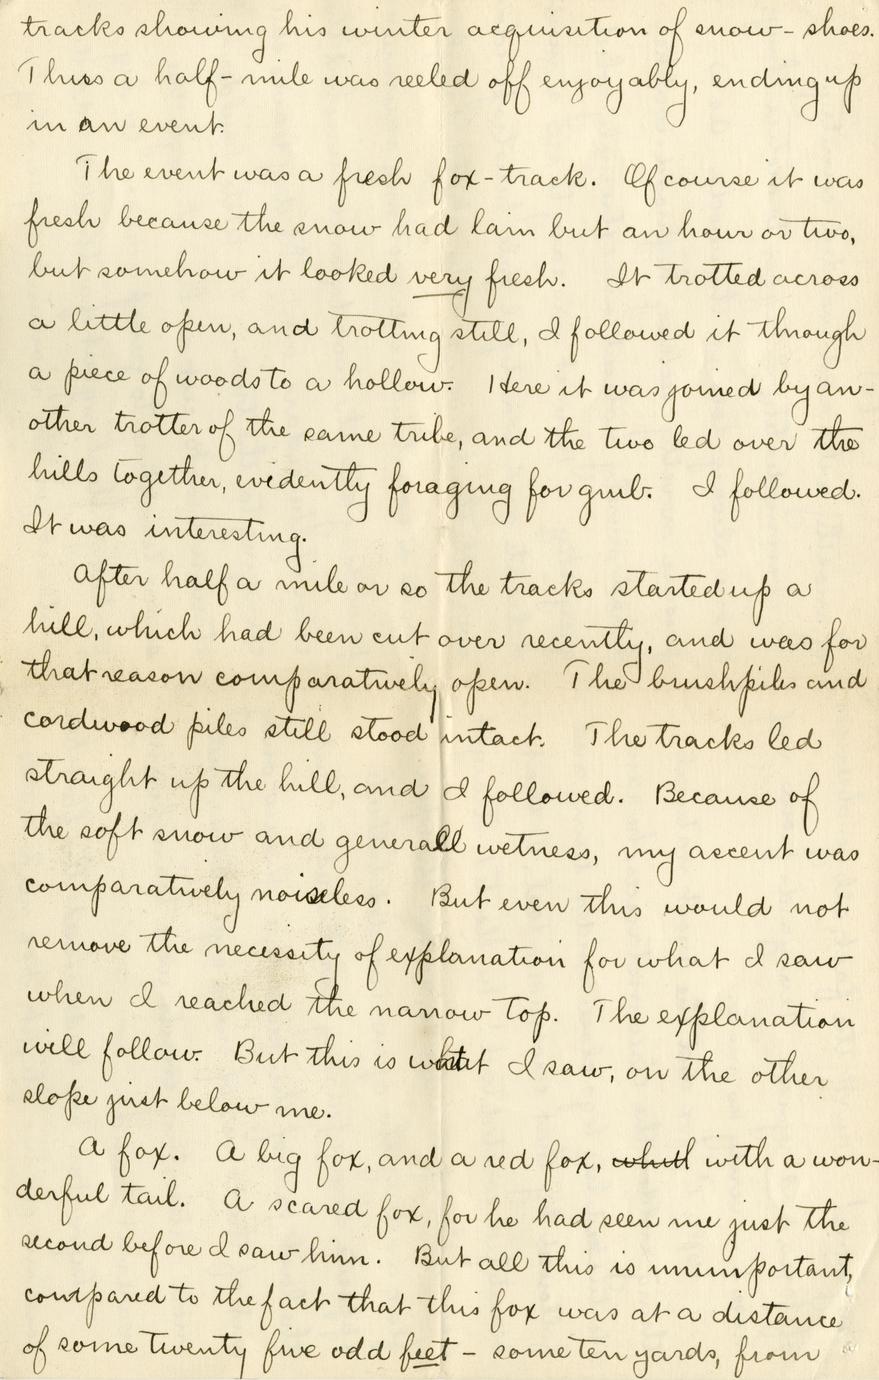 tracks showing his winter acquisition of snow-shoes.
Thus a half-mile was reeled off enjoyably, ending up
in an event.
The event was a fresh fox-track. Of course it was
fresh because the snow had lain but an hour or two,
but somehow it looked very fresh. It trotted across
a little open, and trotting still, I followed it through
a piece of woods to a hollow. Here it was joined by an-
other trotter of the same tribe, and the two led over the
hills together, evidently foraging for grub. I followed.
It was interesting.
After half a mile or so the tracks started up a
hill, which had been cut over recently, and was for
that reason comparatively open. The brushpiles and
cordwood piles still stood intact. The tracks led
straight up the hill, and I followed. Because of
the soft snow and generall wetness, my ascent was
comparatively noiseless. But even this would not
remove the necessity of explanation for what I saw
when I reached the narrow top. The explanation
will follow. But this is what I saw, on the other
slope just below me.
A fox. A big fox, and a red fox, with a won-
derful tail. A scared fox, for he had seen me just the
second before I saw him. But all this is unimportant,
compared to the fact that this fox was at a distance
of some twenty five odd feet - some ten yards, from